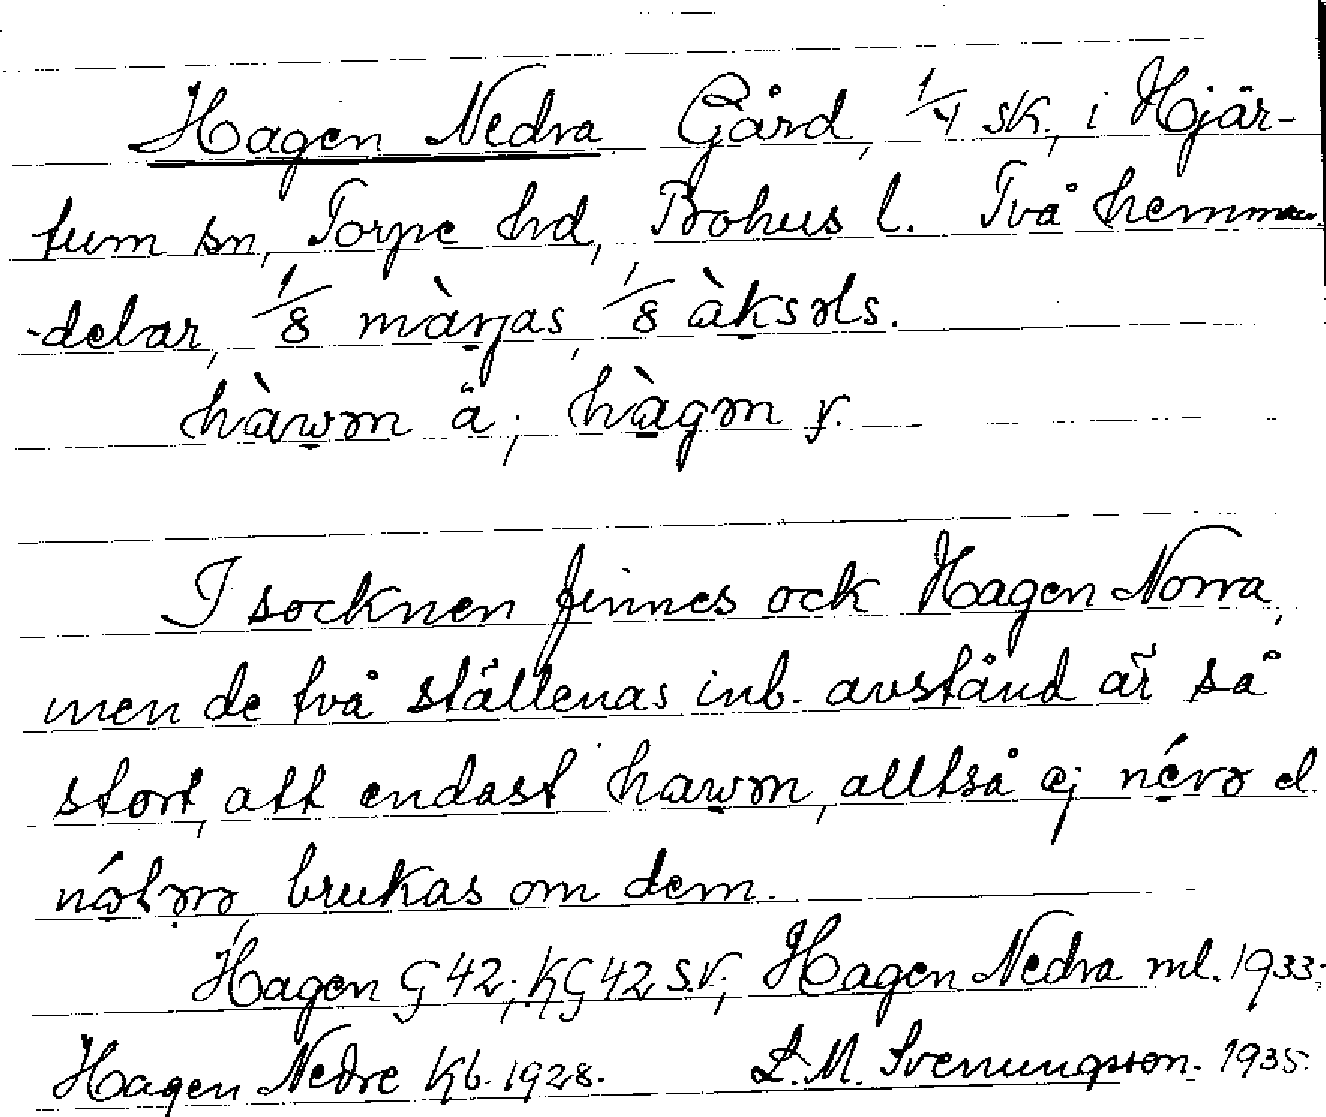 Hagen Nedra Gård, 1/4 sk., i Hjär-
tum sn, Torpe hd, Bohus l. Två hemmans
-delar, 1/8 màŋas, 1/8 àksəls.
hàwən ä.; hàgən y.
I socknen finnes ock Hagen Norra,
men de två ställenas inb. avstånd är så
stort, att endast hawən, alltså ej névrə el.
brukas om dem.
Hagen G 42; KG 42 s.v.; Hagen Nedra ml. 1933;
Hagen Nedre Kb. 1928. L. M. Svenungsson. 1935.